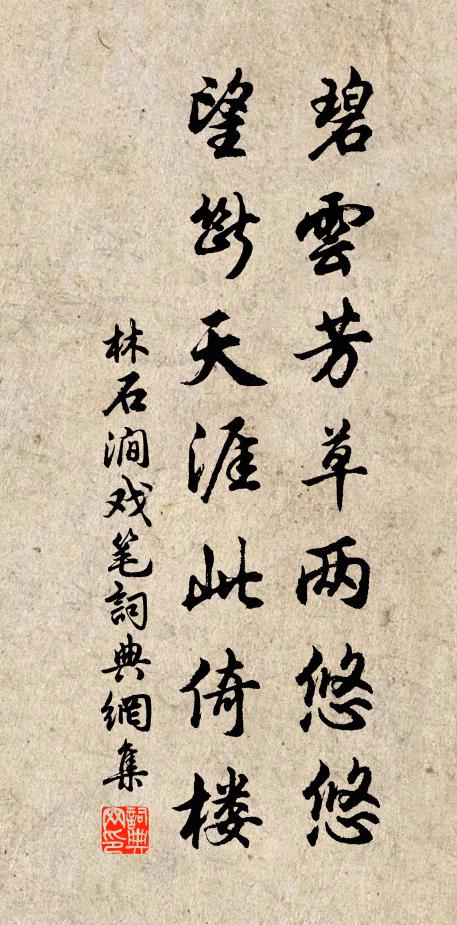 碧雲芳草两悠悠
望斷天涯此倚楼
林石涧戏笔詞典網集
詞典网印